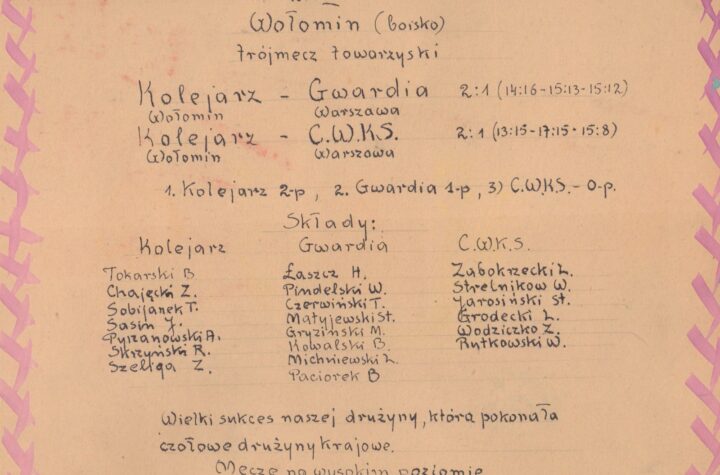 Wołomin (boisko)
trójmecz towarzyski
Kolejarz - Gwardia 2:1 (14:16-15:13-15:12)
Wołomin Warszawa
Kolejarz - C.W.K.S. 2:1 (13:15-17:15-15:8)
Wołomin Warszawa
1. Kolejarz 2-p, 2. Gwardia 1-p, 3) C.W.K.S.-0-p.
Składy:
Kolejarz Gwardia C.W.K.S.
Tokarski B Łaszcz H. Zabokrzecki L.
Chajęcki Z. Pindelski W. Strelnikow W.
Sobijanek T. Czerwiński T. Jarosiński St.
Sasin J. Matyjewski St. Grodecki L.
Pyrzanowski A. Gryziński M. Wodziczko Z.
Skrzyński R. Kowalski B. Rutkowski W.
Szeliga Z. Michniewski L.
Paciorek B
Wielki sukces naszej drużyny, która pokonała
czołowe drużyny krajowe.
Mecze na wysokim poziomie